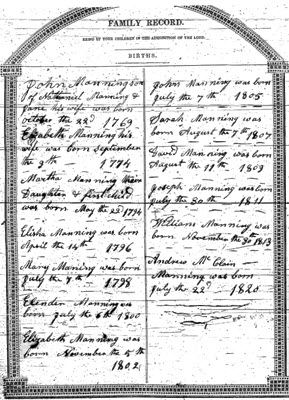 FAMILY RECORD.
BRING UP YOUR CHILDREN IN THE ADMONITION OF THE LORD.
BIRTHS.
John Manning son
of Nathaniel Manning &
Jane his wife was born
october the 22d 1769
Elizabeth Manning his
wife was born September
the 9th 1774
Martha Manning their
Daughter & first child
was born May the 22d 1794
Elisha Manning was born
April the 14th 1796
Mary Maning was born
July the 7th 1798
Manning was
born July the 6th 1800
Elizabeth Manning was
born November the 5th
1802
John Manning was born
July the 7th 1805
Sarah Manning was
born August the 7th 1807
David Manning was born
August the 11th 1809
Joseph Manning was born
July the 30th 1811
William Manning was
born November the 30 1813
Andrew Mc Clain
Manning was born
July the 22d 1820